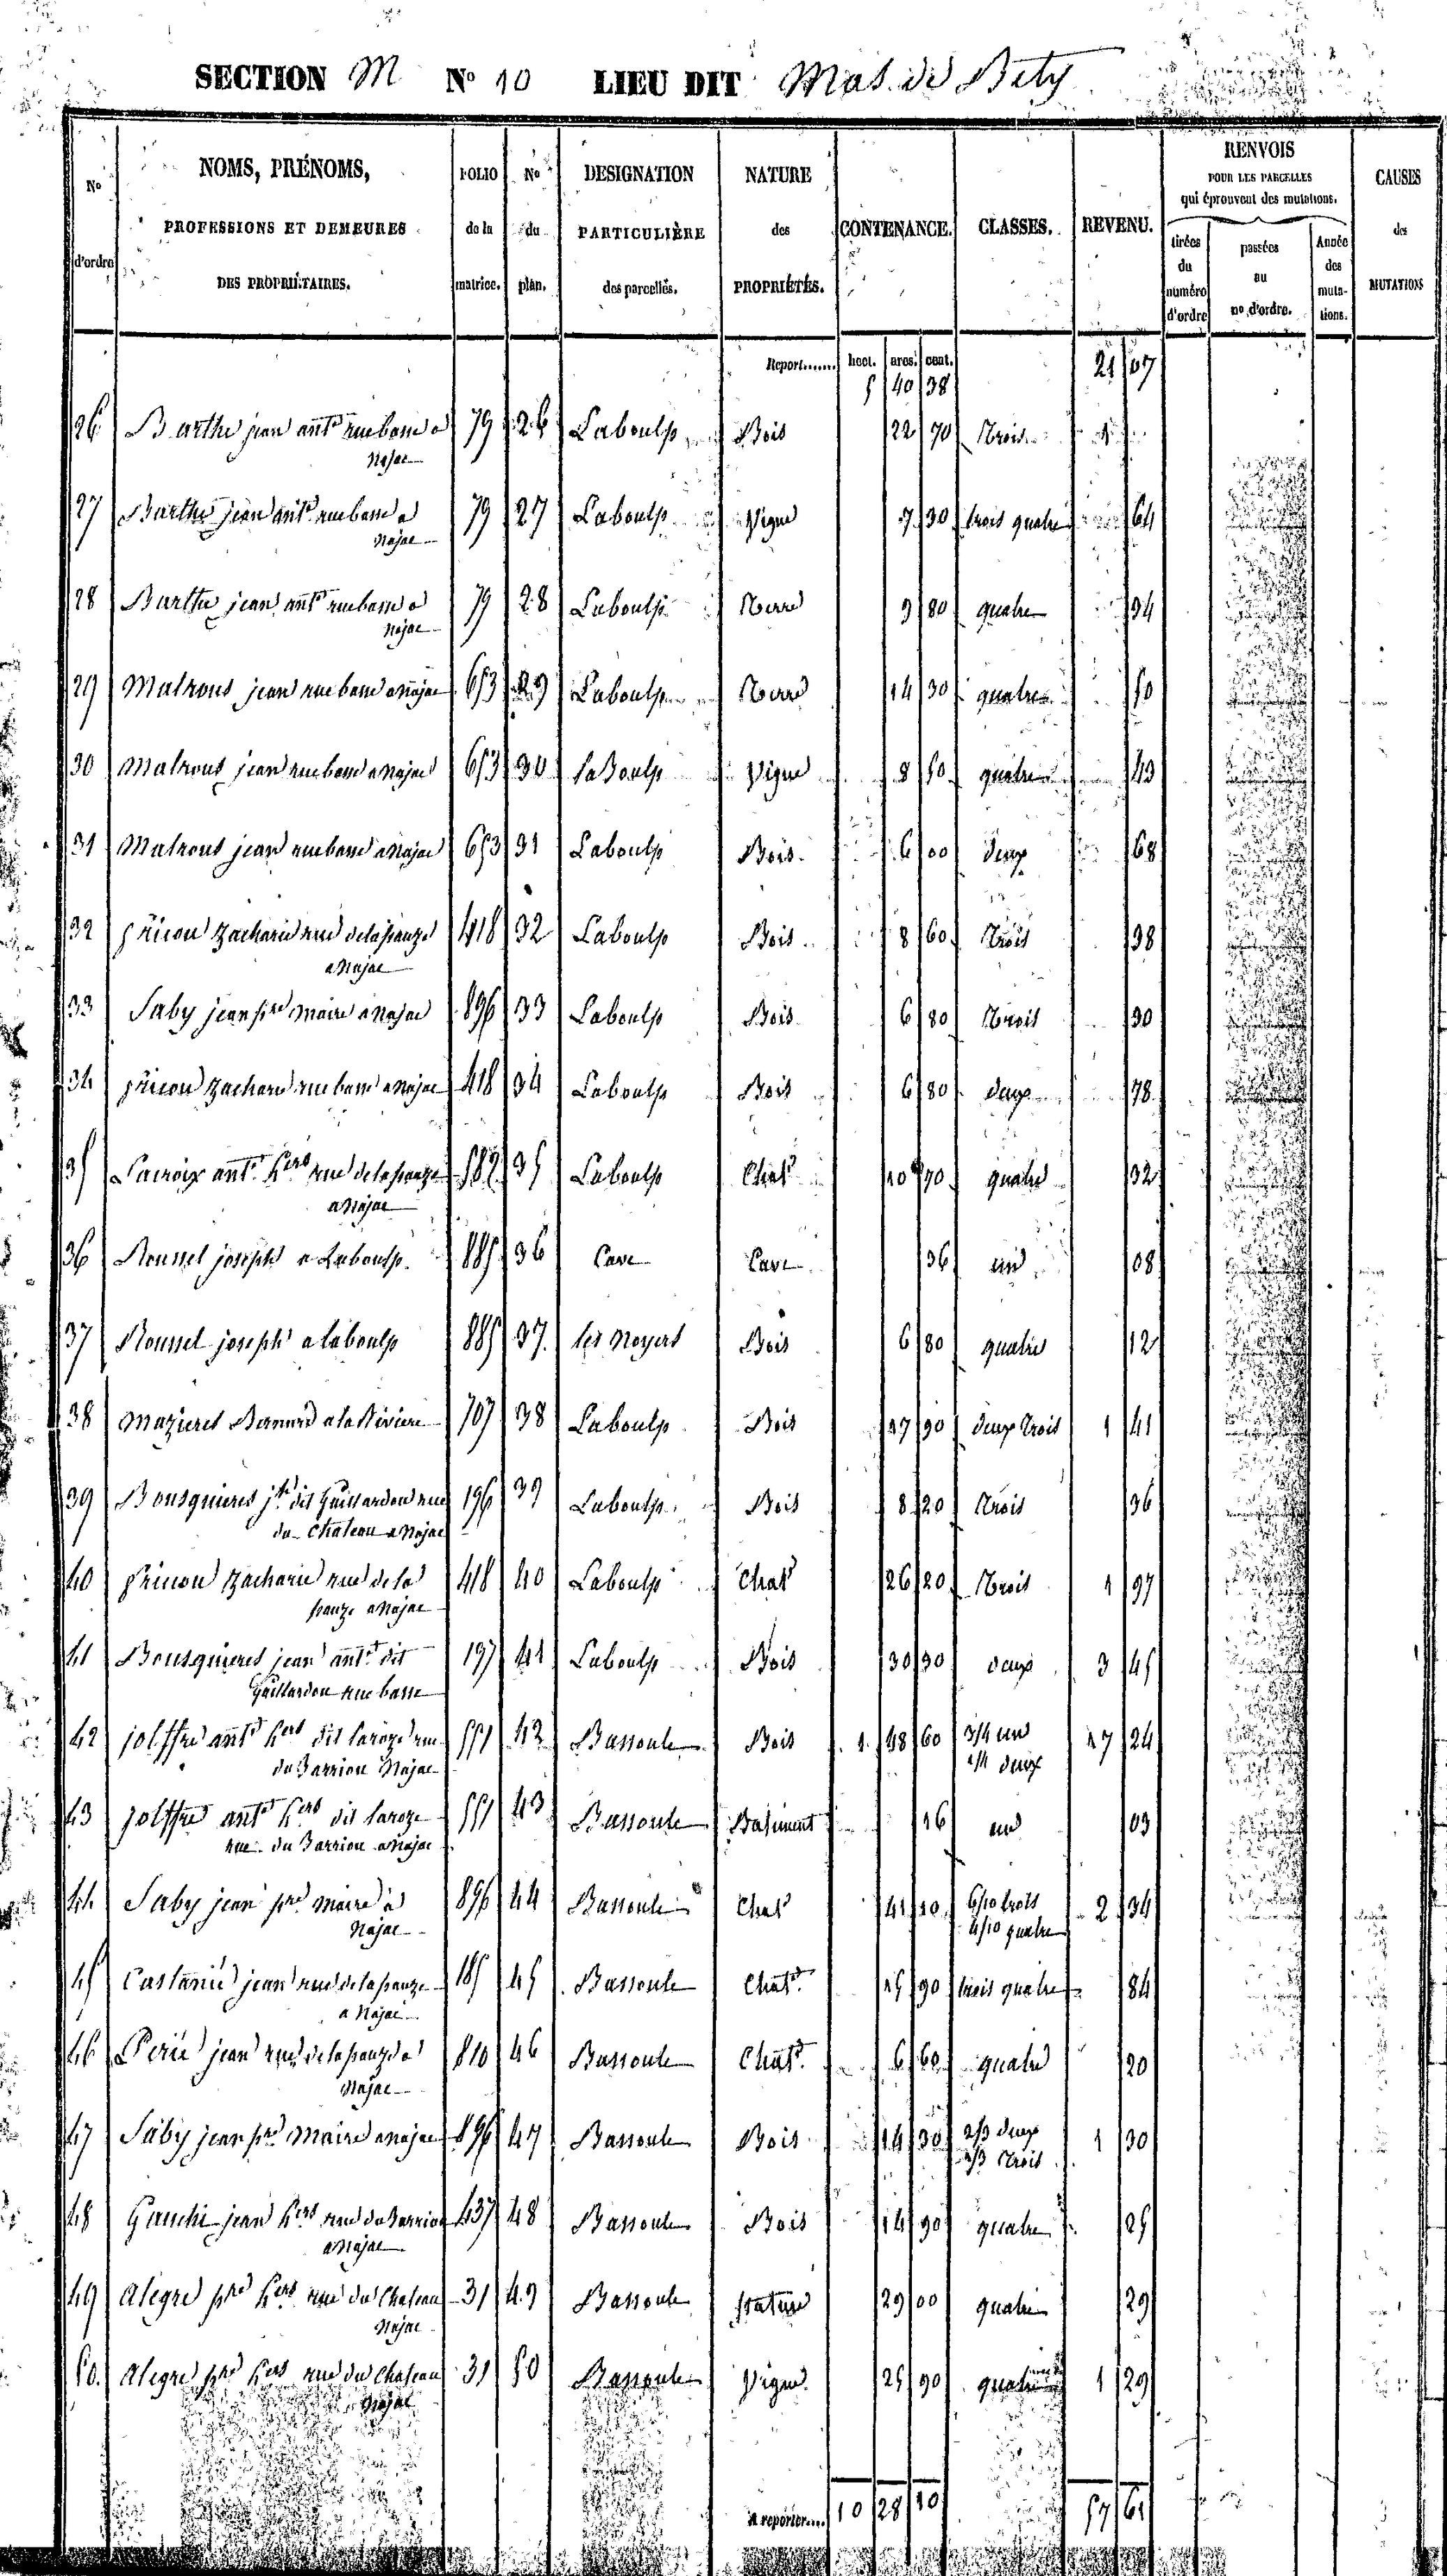 SECTION M N° 10 LIEU DIT Mas de Bety
N° d'ordre
NOMS, PRÉNOMS,
PROFESSIONS ET DEMEURES
DES PROPRIÉTAIRES.
FOLIO de la matrice.
N° du plan.
DESIGNATION PARTICULIÈRE des parcelles.
NATURE des PROPRIÉTÉS.
CONTENANCE.
CLASSES.
REVENU.
RENVOIS
POUR LES PARCELLES
qui éprouvent des mutations.
tirées du numéro d'ordre
passées au no d'ordre.
Année des mutations.
CAUSES des MUTATIONS
Report...... hect. ares. cent.
5 40 38 21 07
26 Barthe jean ant.e rue basse a 79 26 Laboulp Bois 22 70 Trois 1
Najac
27 Barthe jean ant.e rue basse a 79 27 Laboulp Vigne 7 30 trois quatre 64
Najac
28 Barthe jean ant.e rue basse a 79 28 Laboulp Terre 9 80 quatre 34
Najac
29 Matrous jean rue basse a Najac 653 29 Laboulp Terre 14 30 quatre 50
30 Matrous jean rue basse a Najac 653 30 laBoulp Vigne 8 50 quatre 43
31 Matrous jean rue basse a Najac 653 31 Laboulp Bois 6 00 deux 68
32 Zacharie rue de la pauze 418 32 Laboulp Bois 8 60 Trois 38
a Najac
33 Saby jean pre maire a Najac 896 33 Laboulp Bois 6 80 Trois 30
34 rue basse a Najac 418 34 Laboulp Bois 6 80 deux 78
35 Lacroix ant.e hers rue de la pauze 582 35 Laboulp Chat 10 70 quatre 32
a Najac
36 Roussel joseph a Laboulp 885 36 Cave Cave 36 un 08
37 Roussel joseph a laboulp 885 37 les Noyers Bois 6 80 quatre 12
38 Mazieres Bernard a la Riviere 707 38 Laboulp Bois 27 90 deux trois 1 41
39 Bousquieres jh dit Gaillardou rue 196 39 Laboulp Bois 8 20 Trois 36
du Chateau a Najac
40 Zacharie rue de la 418 40 Laboulp Chat 26 20 Trois 1 97
pauze a Najac
41 Bousquieres jean ant.e dit 197 41 Laboulp Bois 30 30 deux 3 45
Gaillardou rue basse
42 jolffre ant.e hers dit laroze rue 551 42 Bassoule Bois 1 48 60 3/4 un 17 24
du Barriou Najac 1/4 deux
43 jolffre ant.e hers dit laroze 551 43 Bassoule Batiment 16 un 03
rue du Barriou a Najac
44 Saby jean pre maire à 896 44 Bassoule Chat 41 10 6/10 trois 2 34
Najac 4/10 quatre
45 Castanié jean rue de la pauze 185 45 Bassoule Chat 15 90 trois quatre 84
a Najac
46 Perié jean rue de la pauze a 810 46 Bassoule Chat 6 60 quatre 20
Najac
47 Saby jean pre Maire a Najac 896 47 Bassoule Bois 14 30 deux 1 30
Trois
48 Gauchi jean hers rue du Barriou 437 48 Bassoule Bois 14 90 quatre 25
a Najac
49 Alegre pre hers rue du Chateau 31 49 Bassoule pature 29 00 quatre 29
Najac
50 Alegre pre hers rue du Chateau 31 50 Bassoule Vigne 25 90 quatre 1 29
Najac
A reporter.... 10 28 10 57 61